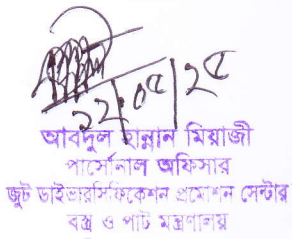 ২২/০৫/২৫
আবদুল হান্নান মিয়াজী
পার্সোনাল অফিসার
জুট ডাইভারসিফিকেশন প্রমোশন সেন্টার
বস্ত্র ও পাট মন্ত্রণালয়